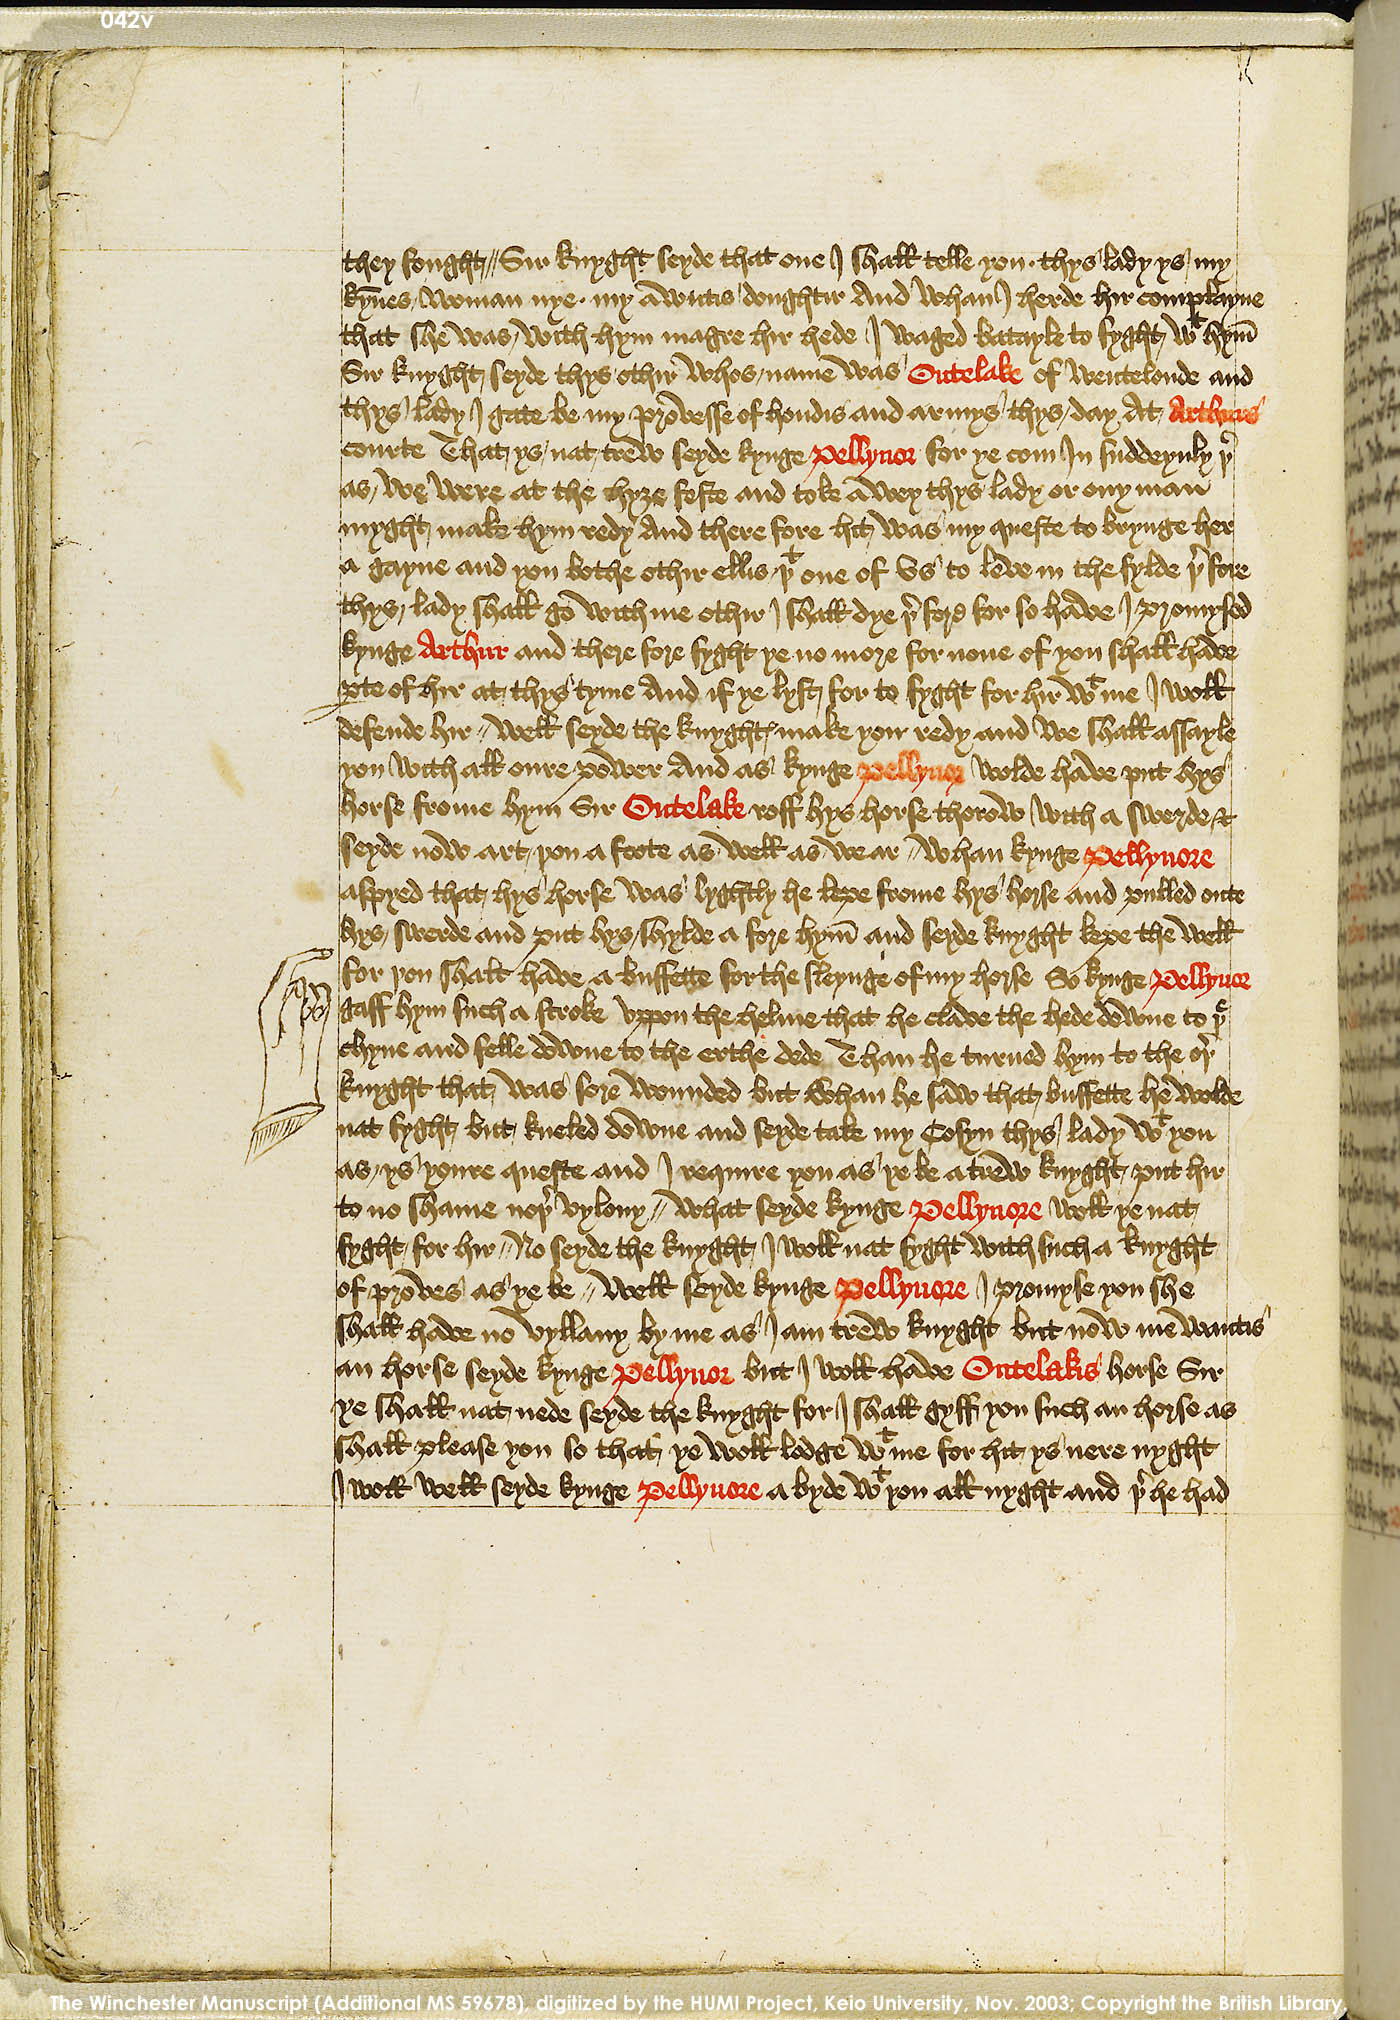 042v
they fought // Sir knyght seyde that one I shall telle you · thys lady ys my
kyn̄es woman nye · my awntis doughtir And whan I herde hir complayne
that she was with hym magre hir hede I waged batayle to fyght wᵗ hym̄
Sir knyght seyde thys othir whos name was Outelake of Wentelonde and
thys lady I gate be my prouesse of hondis and armys thys day At Arthurs
courte That ys nat trew seyde kynge Pellynor for ye com In suddeynly þʳ
as we were at the hyȝe feste and toke awey thys lady or ony man
myght make hym redy And there fore hit was my queste to brynge her
a gayne and you bothe othir ellis þᵗ one of vs to leve in the fylde þʳ fore
thys lady shall go with me othir I shall dye þʳ fore for so have I promysed
kynge Arthur and there fore fyght ye no more for none of you shall have
ꝑte of hir at thys tyme And if ye lyst for to fyght for hir wᵗ me I woll
defende hir // Well seyde the knyght make your redy and we shall assayle
you with all oure power And as kynge Pellynor wolde have put hys
horse frome hym Sir Outelake roff hys horse thorow with a swerde &
seyde now art you a foote as well as we ar // Whan kynge Pellynore
aspyed that hys horse was lyghtly he lepe frome hys horse and pulled oute
hys swerde and put hys shylde a fore hym̄ and seyde knyght kepe the well
for you shalt have a buffette for the sleynge of my horse So kynge Pellynor
gaff hym such a stroke vppon the helme that he clave the hede downe to þᵉ
chyne and felle downe to the erthe dede Than he turned hym to the oþʳ
knyght that was sore wounded but whan he saw that buffette he wolde
nat fyght but kneled downe and seyde take my Cosyn thys lady wᵗ you
as ys youre queste and I requyre you as ye be a trew knyght put hir
to no shame noþʳ vylony // What seyde kynge Pellynore woll ye nat
fyght for hir // No seyde the knyght I woll nat fyght with such a knyght
of proves as ye be // Well seyde kynge Pellynore I promyse you she
shall have no vyllany by me as I am trew knyght but now me wantis
an horse seyde kynge Pellynor but I woll have Outelakis horse Sir
ye shall nat nede seyde the knyght for I shall gyff you such an horse as
shall please you so that ye woll lodge wᵗ me for hit ys nere nyght
I woll well seyde kynge Pellynore a byde wᵗ you all nyght and þʳ he had
The Winchester Manuscript (Additional MS 59678), digitized by the HUMI Project, Keio University, Nov. 2003; Copyright the British Library,